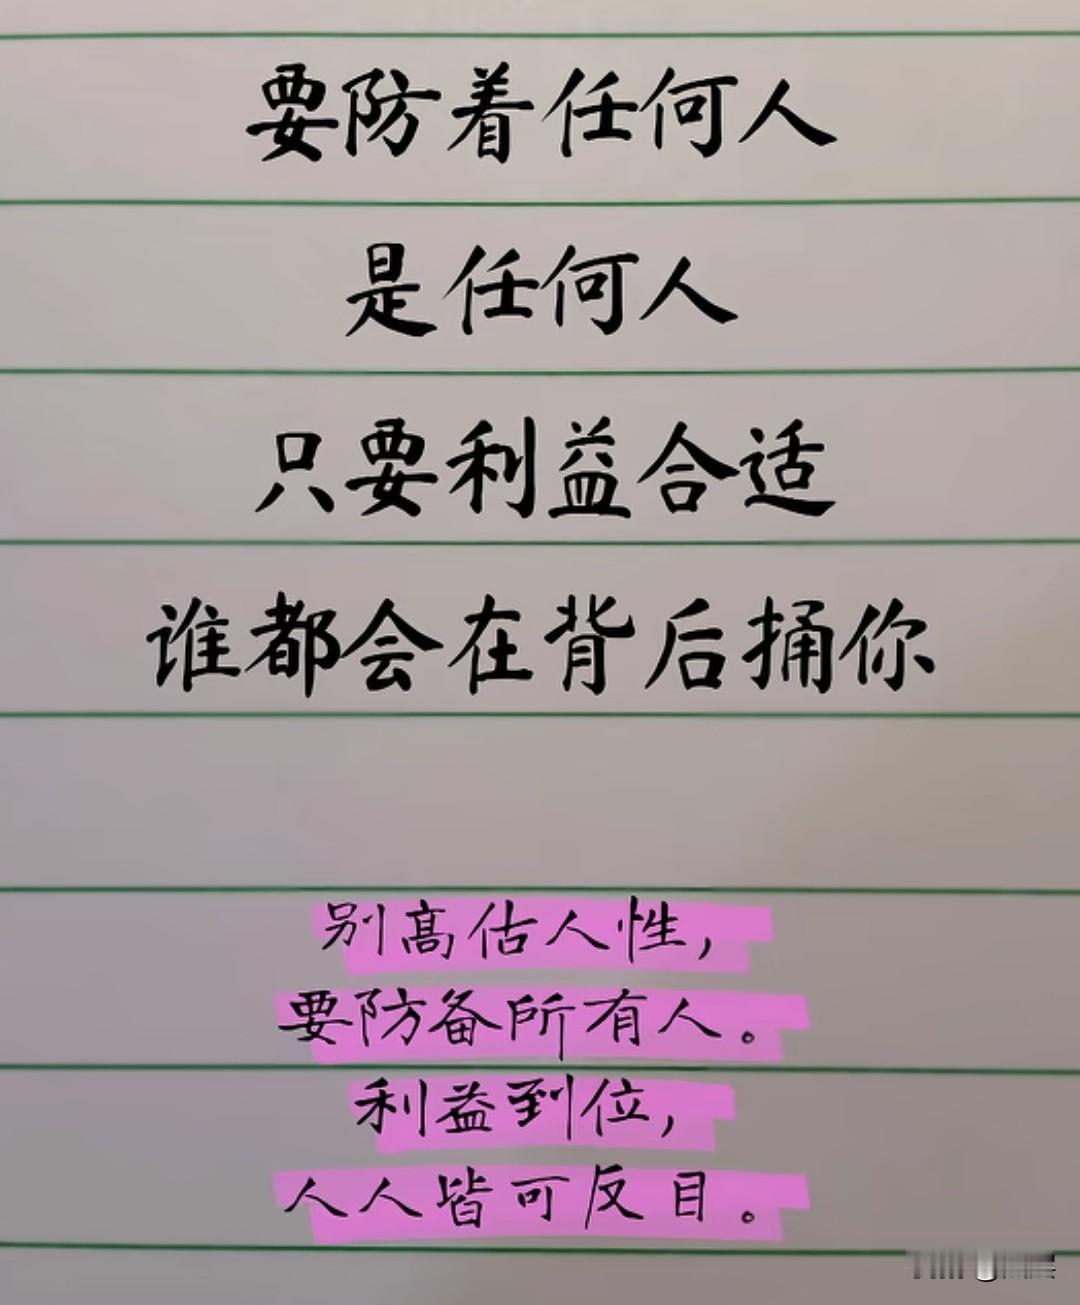 要防着任何人
是任何人
只要利益合适
谁都会在背后捅你
别高估人性，
要防备所有人。
利益到位，
人人皆可反目。